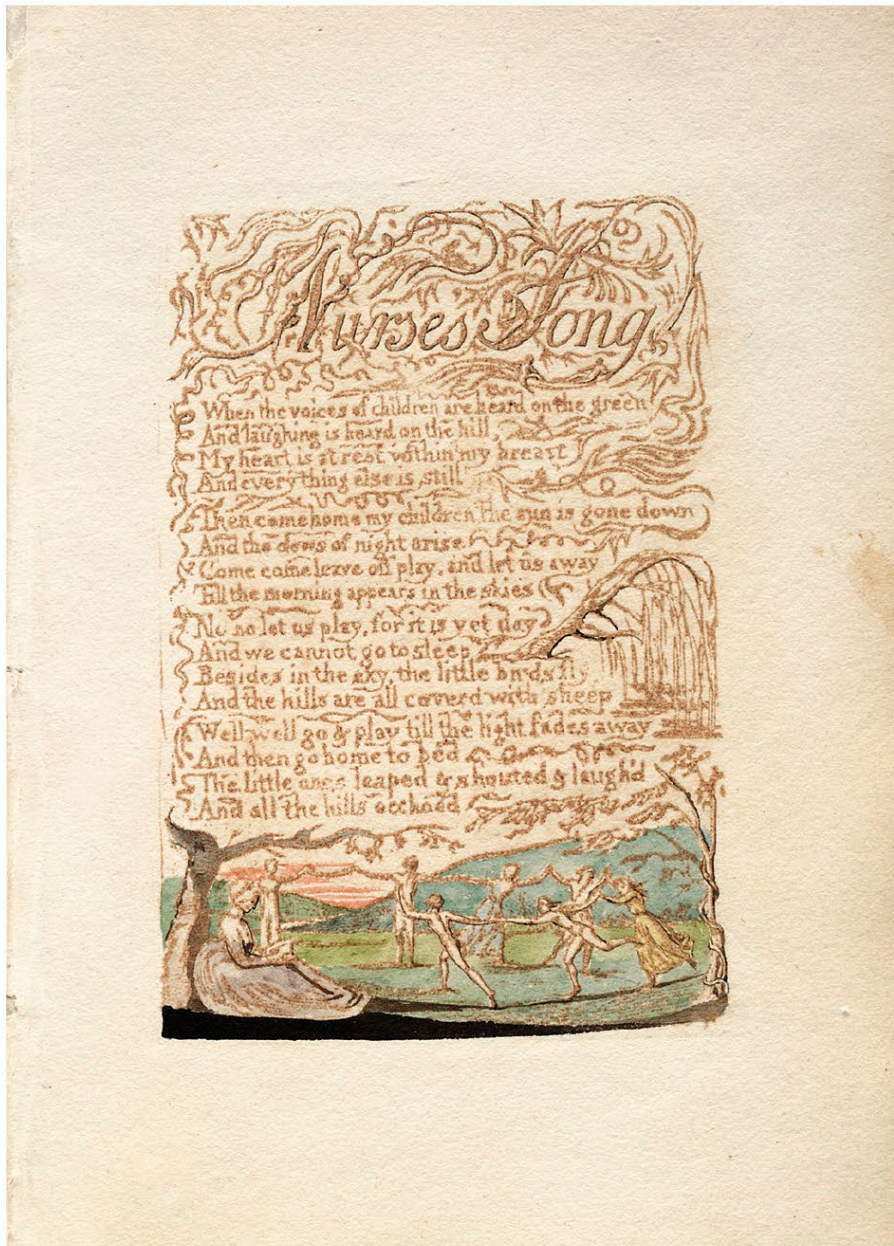 Nurses Song
When the voices of children are heard on the green
And laughing is heard on the hill,
My heart is at rest within my breast
And every thing else is still
Then come home my children, the sun is gone down
And the dews of night arise
Come come leave off play, and let us away
Till the morning appears in the skies
No no let us play, for it is yet day
And we cannot go to sleep
Besides in the sky, the little birds fly
And the hills are all coverd with sheep
Well well go & play till the light fades away
And then go home to bed
The little ones leaped & shouted & laugh'd
And all the hills ecchoed